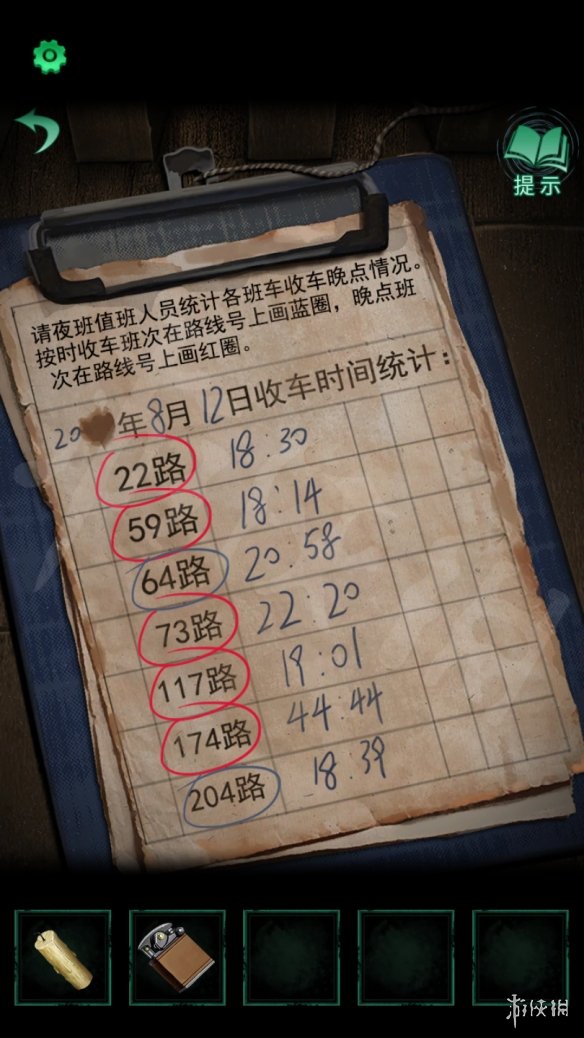 提示
请夜班值班人员统计各班车收车晚点情况。
按时收车班次在路线号上画蓝圈，晚点班
次在路线号上画红圈。
20 年8月12日收车时间统计：
22路 18:30
59路 18:14
64路 20:58
73路 22:20
117路 19:01
174路 44:44
204路 18:39
游侠网